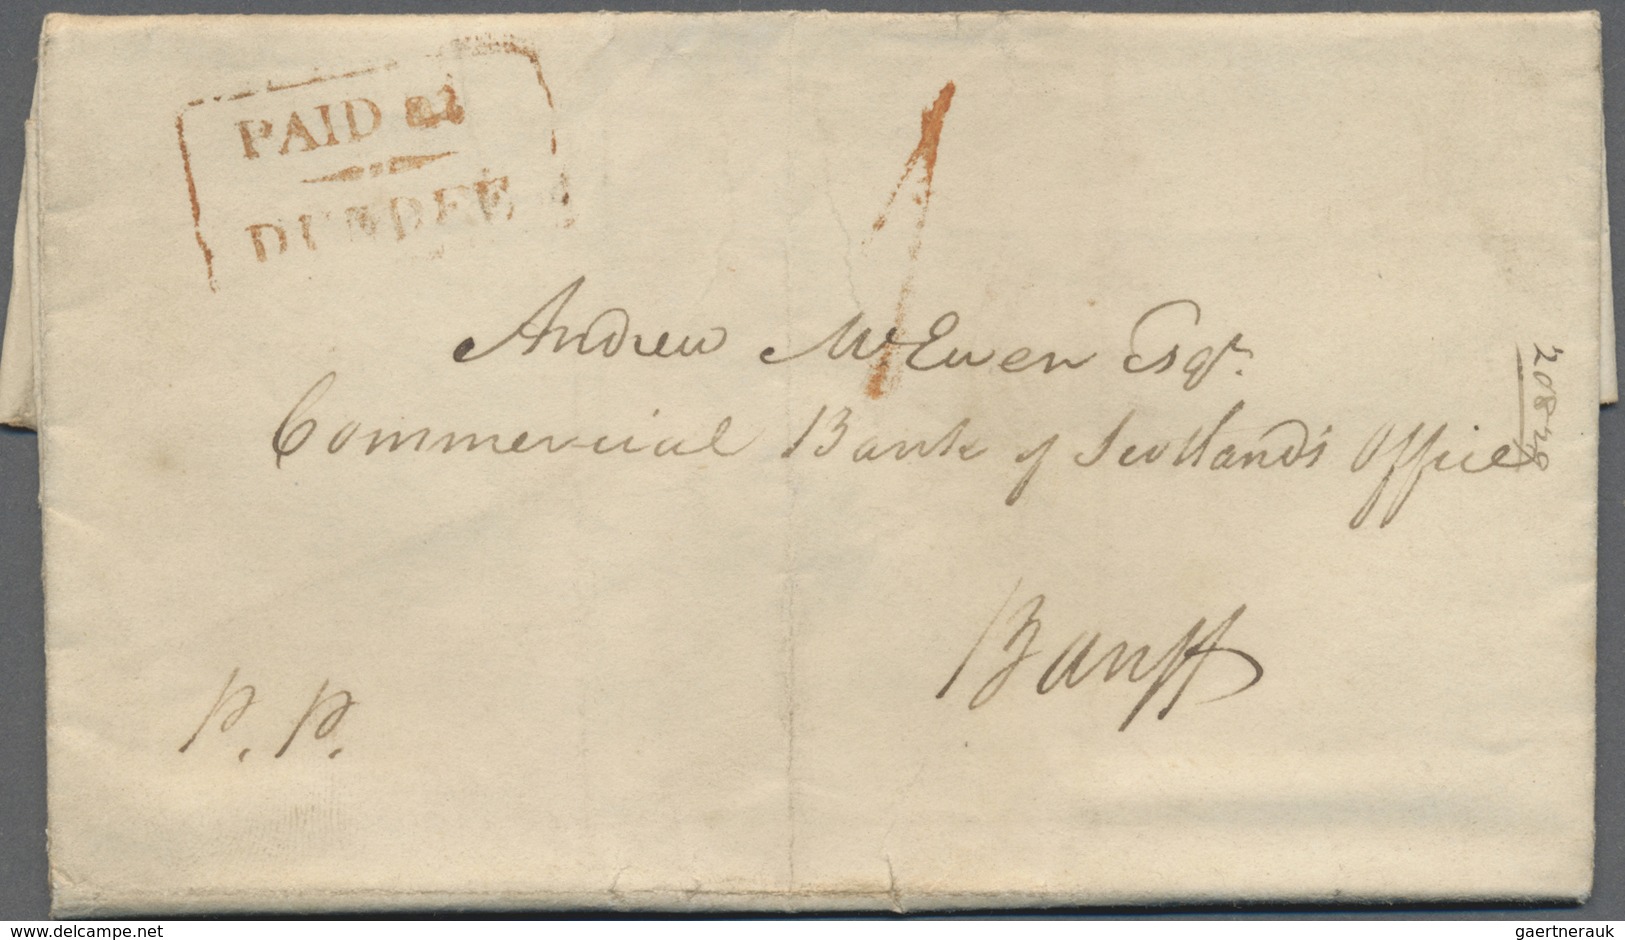 PAID at
DUNDEE
1
Andrew McEwen Esqr.
Commercial Bank of Scotland's Office
Banff
P. P.
delcampe.net
gaertnerauk